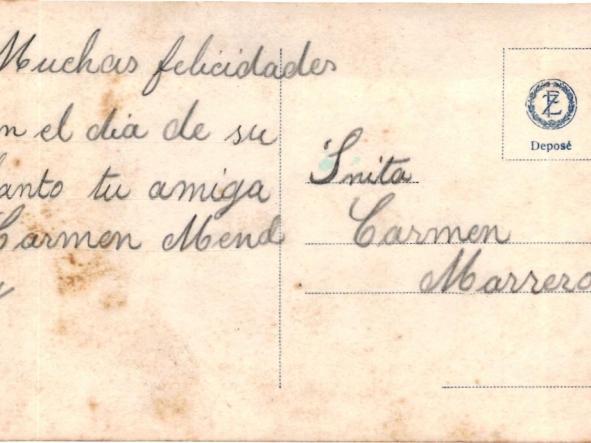 Muchas felicidades
n el dia de su
anto tu amiga
Carmen Mend
Snita
Carmen
Marrero
EZ
Deposé